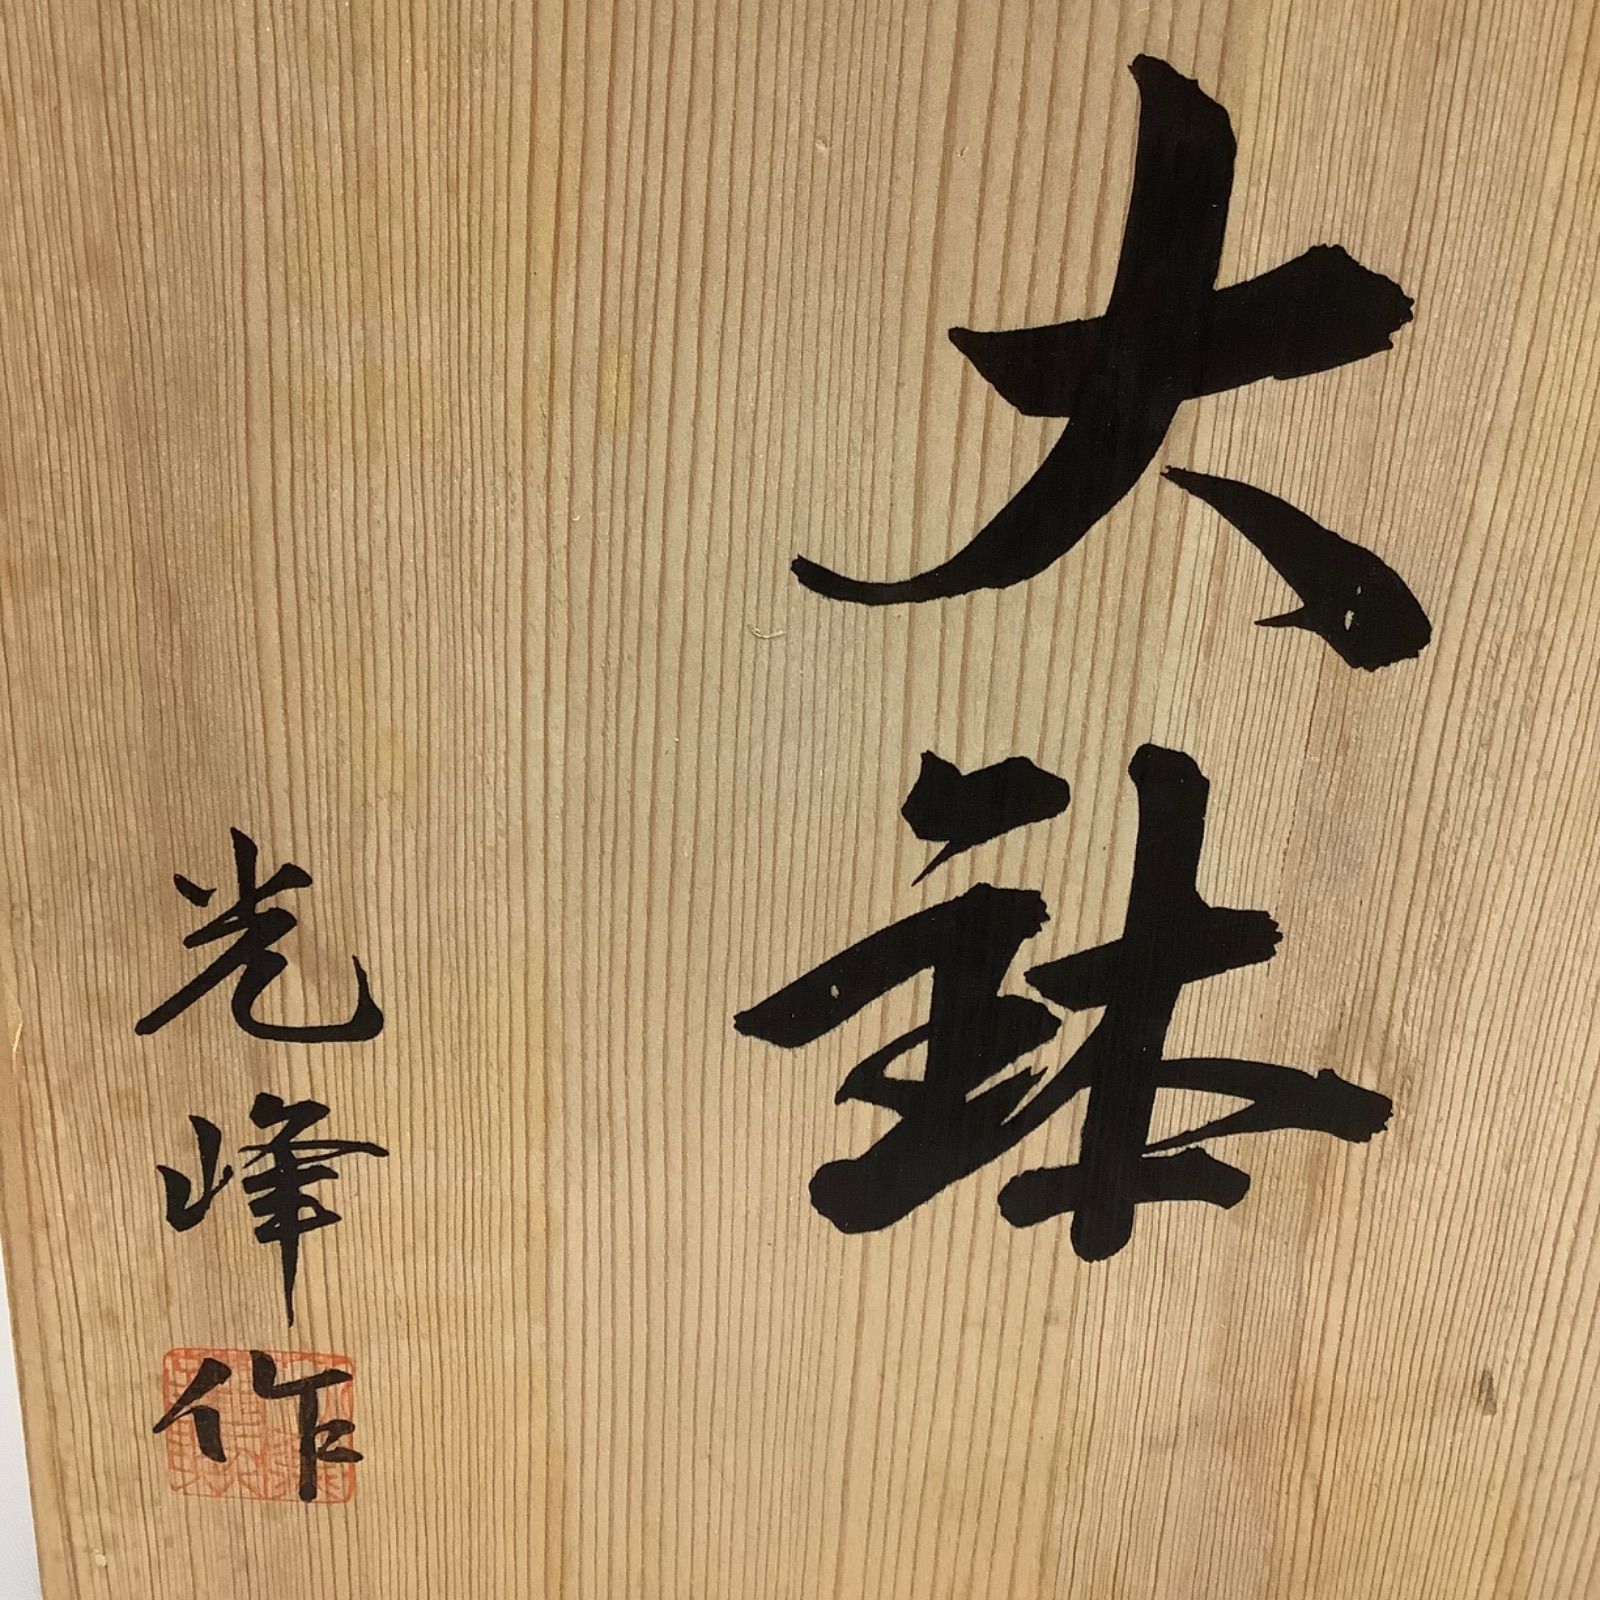 大鉢
光峰作